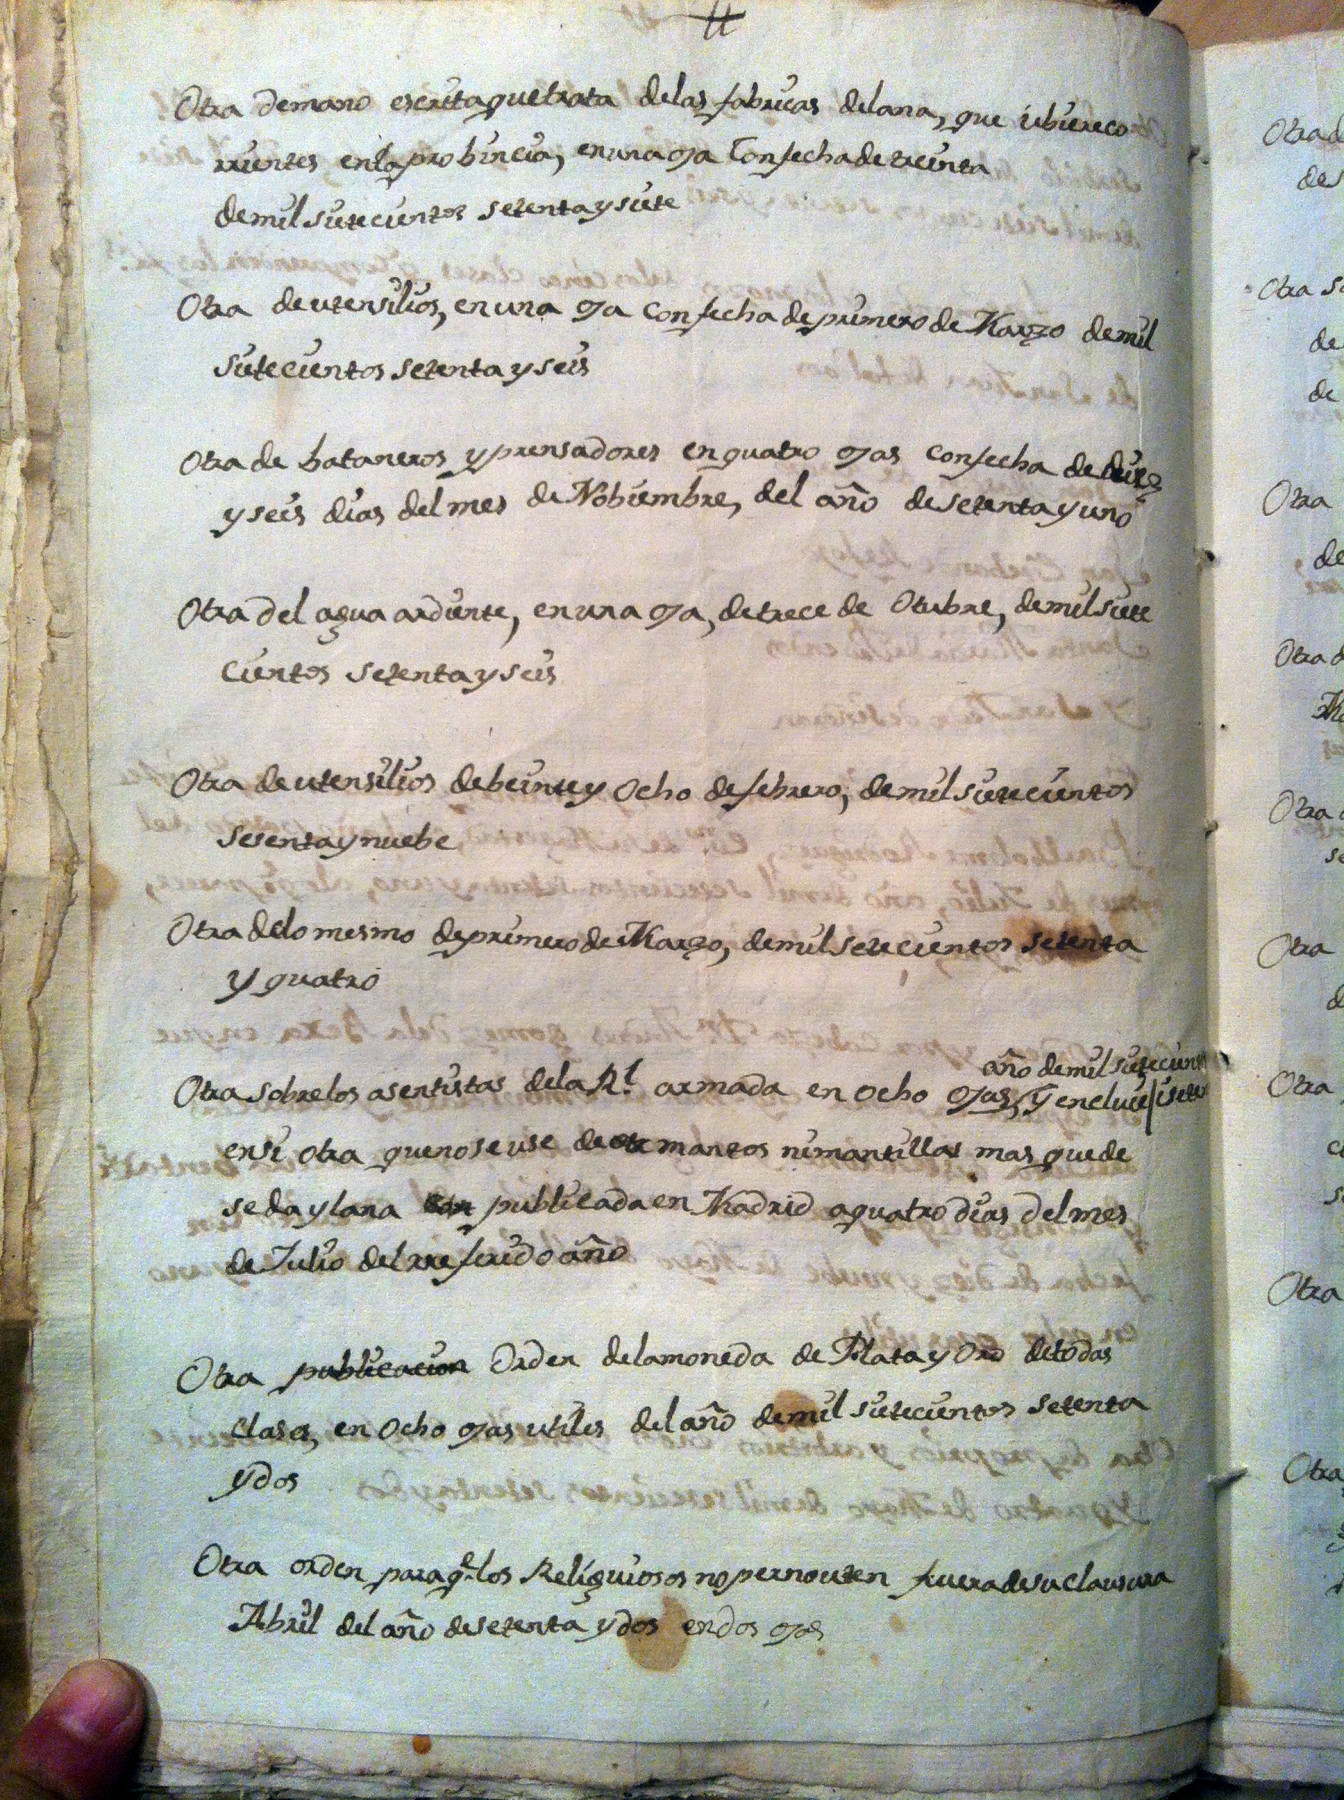 Otra demano escritaquetrata delas fabricas delana, que ubiereco
rrientes enlaprobincia, enunaoja Confechadetreinta
demil sietecientos setentaysiete
Otra deutensilios, en una oja confecha deprimero de Marzo demil
sietecientos setenta y seis
Otra de bataneros yprensadores enquatro ojas confecha dediez
yseis dias del mes de Nobiembre, del año desetenta y uno
Otra del agua ardiente, en una oja, detrece de Otubre, demil siete
cientos setenta y seis
Otra deutensilios debeintey ocho defebrero, demil sietecientos
sesentaynuebe
Otra delo mesmo deprimero de Marzo, demil setecientos setenta
y quatro
año demil sietecientos
Otra sobrelos asentistas dela Rl. armada en ocho ojas, Y encluie
ensi otra quenoseuse de mantos nimantillas mas quede
seda y lana publicada en Madrid aquatro dias delmes
de Julio del rreferido año
Otra publicacion Orden delamoneda de Plata y Oro detodas
clases, en ocho ojas utiles del año demil sietecientos setenta
ydos
Otra orden paraqe. los Religuiosos nopernouten fueradesuclausura
Abril del año desetenta ydos endos ojas
Otra
Otra
de
de
Otra
de
Otra
Otra
Otra
Otra
Otra
Otra